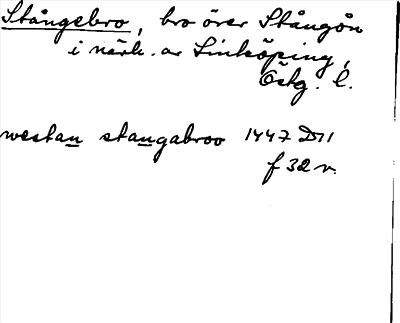 Stångebro, bro över Stångån
i närh. av Linköping,
Östg. l.
westan stangabroo 1447 D11
f 32 v.